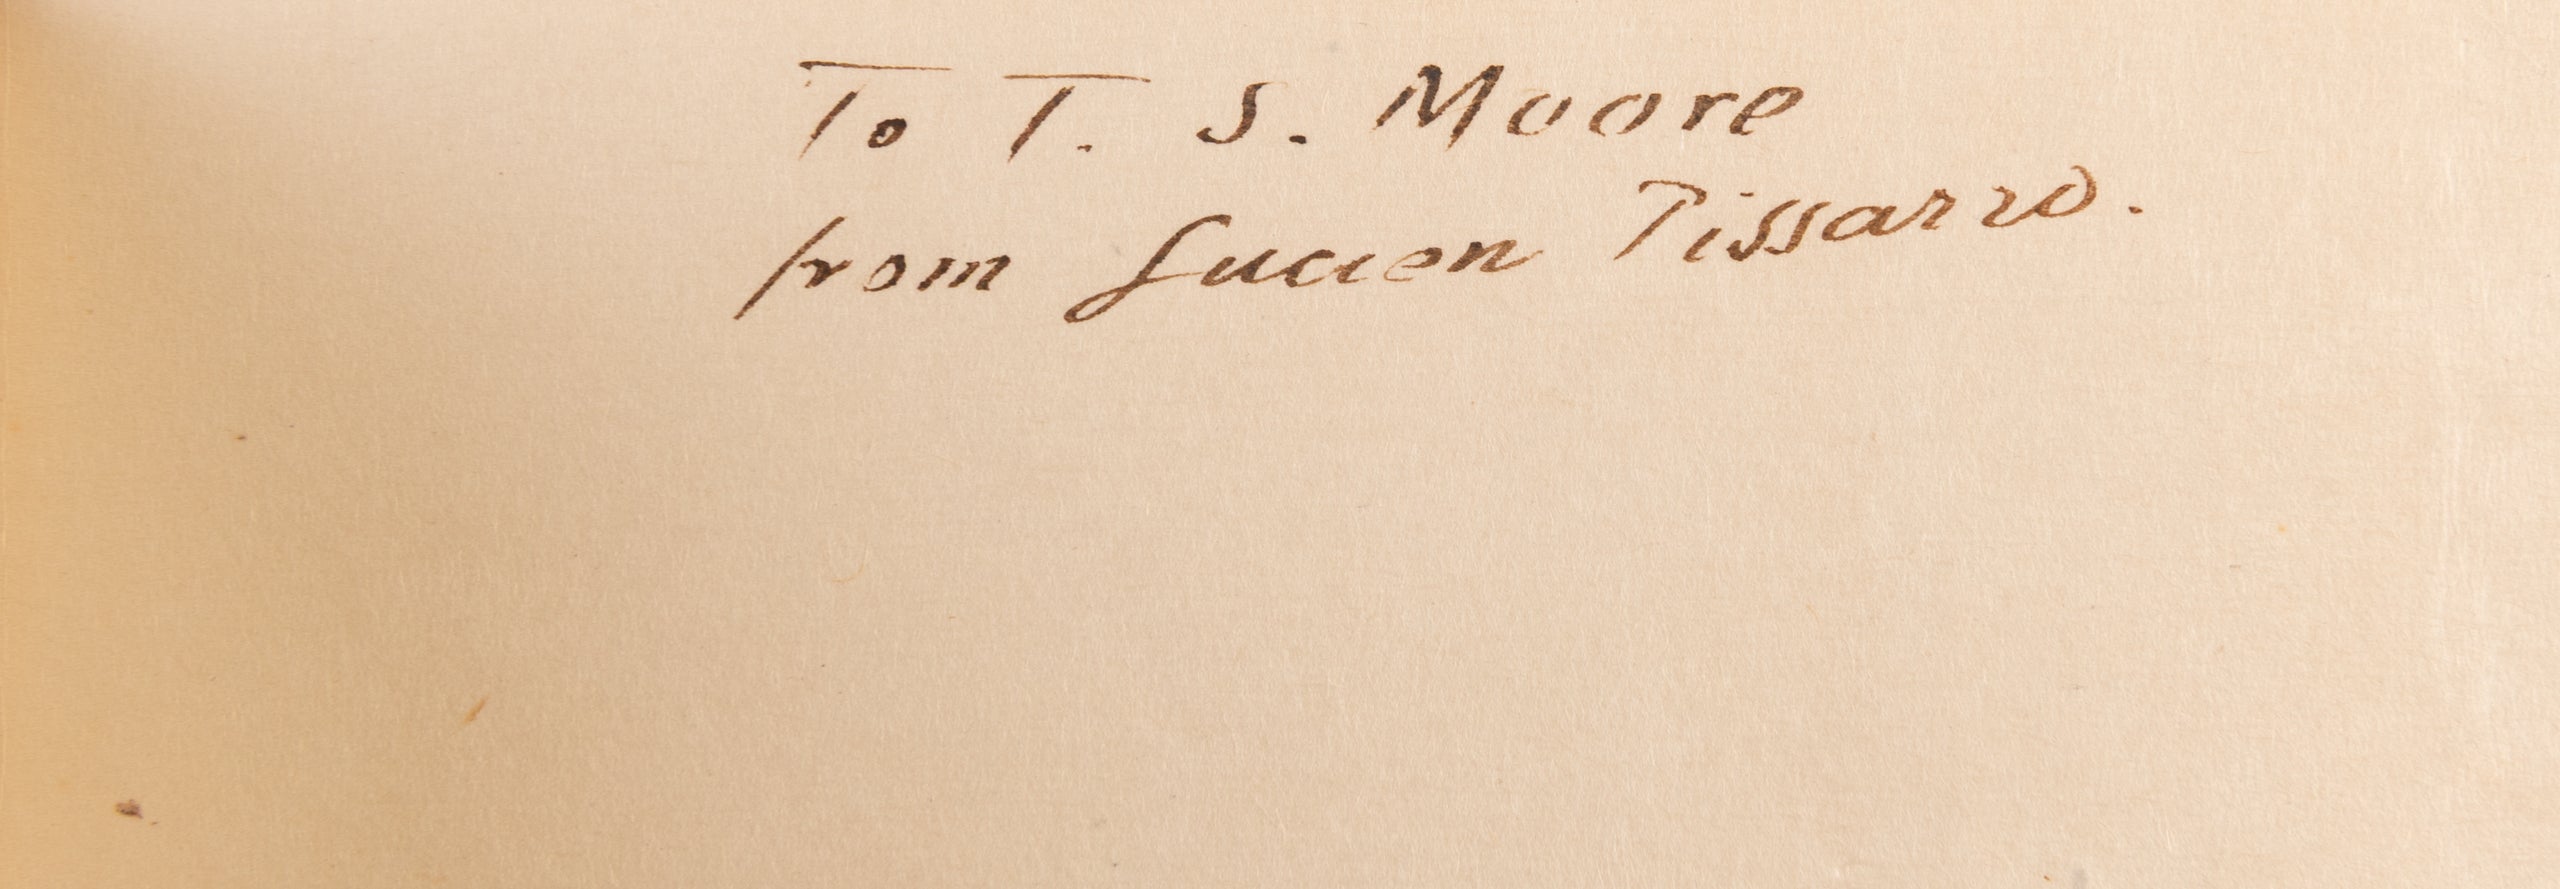 To T. S. Moore
from Lucien Pissarro.